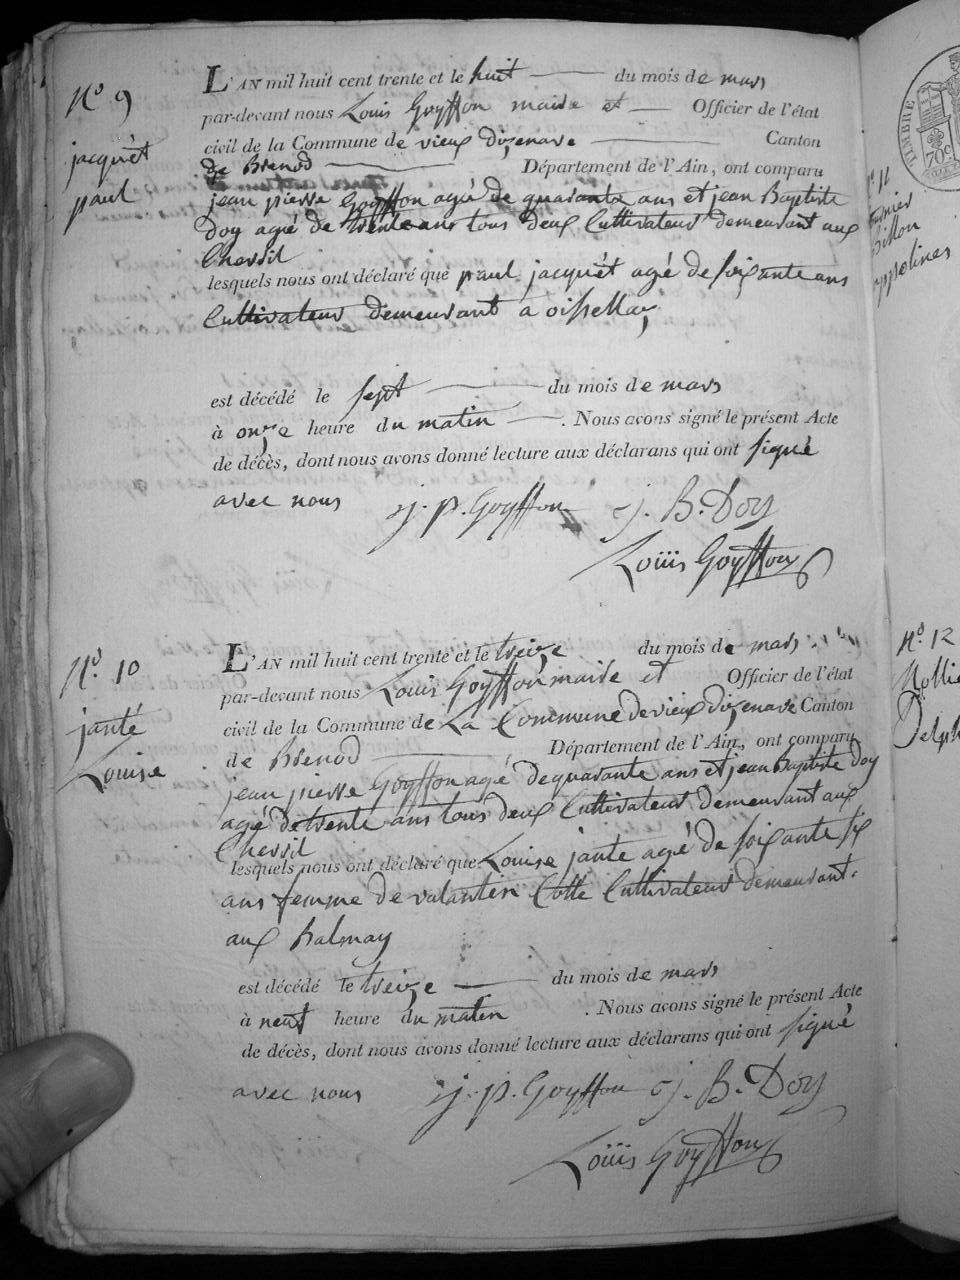 N.º 9
jacquêt
paul
L'AN mil huit cent trente et le huit du mois de mars
par-devant nous Louis Goyffon maire et Officier de l'état
civil de la Commune de vieux dizenave Canton
de Brenod Département de l'Ain, ont comparu
jean pierre Goyffon agé de quarante ans et jean Baptiste
Doy agé de trente ans tous deux Cultivateur demeurant aux
Chevril
lesquels nous ont déclaré que paul jacquêt agé de soixante ans
Cultivateur demeurant a oissellaz
est décédé le sept du mois de mars
à onze heure du matin . Nous avons signé le présent Acte
de décès, dont nous avons donné lecture aux déclarans qui ont signé
avec nous j. p. Goyffon j. B. Doy
Louis Goyffon
N.º 10
janté
Louise
L'AN mil huit cent trente et le treize du mois de mars
par-devant nous Louis Goyffon maire et Officier de l'état
civil de la Commune de La Commune de vieux dizenave Canton
de Brenod Département de l'Ain, ont comparu
jean pierre Goyffon agé de quarante ans et jean Baptiste Doy
agé de trente ans tous deux Cultivateur demeurant aux
Chevril
lesquels nous ont déclaré que Louise jante agé de soixante six
ans femme de valantin Cotte Cultivateur demeurant
aux Balmay
est décédé le treize du mois de mars
à neuf heure du matin . Nous avons signé le présent Acte
de décès, dont nous avons donné lecture aux déclarans qui ont signé
avec nous j. p. Goyffon j. B. Doy
Louis Goyffon
TIMBRE
70c
N.º 12